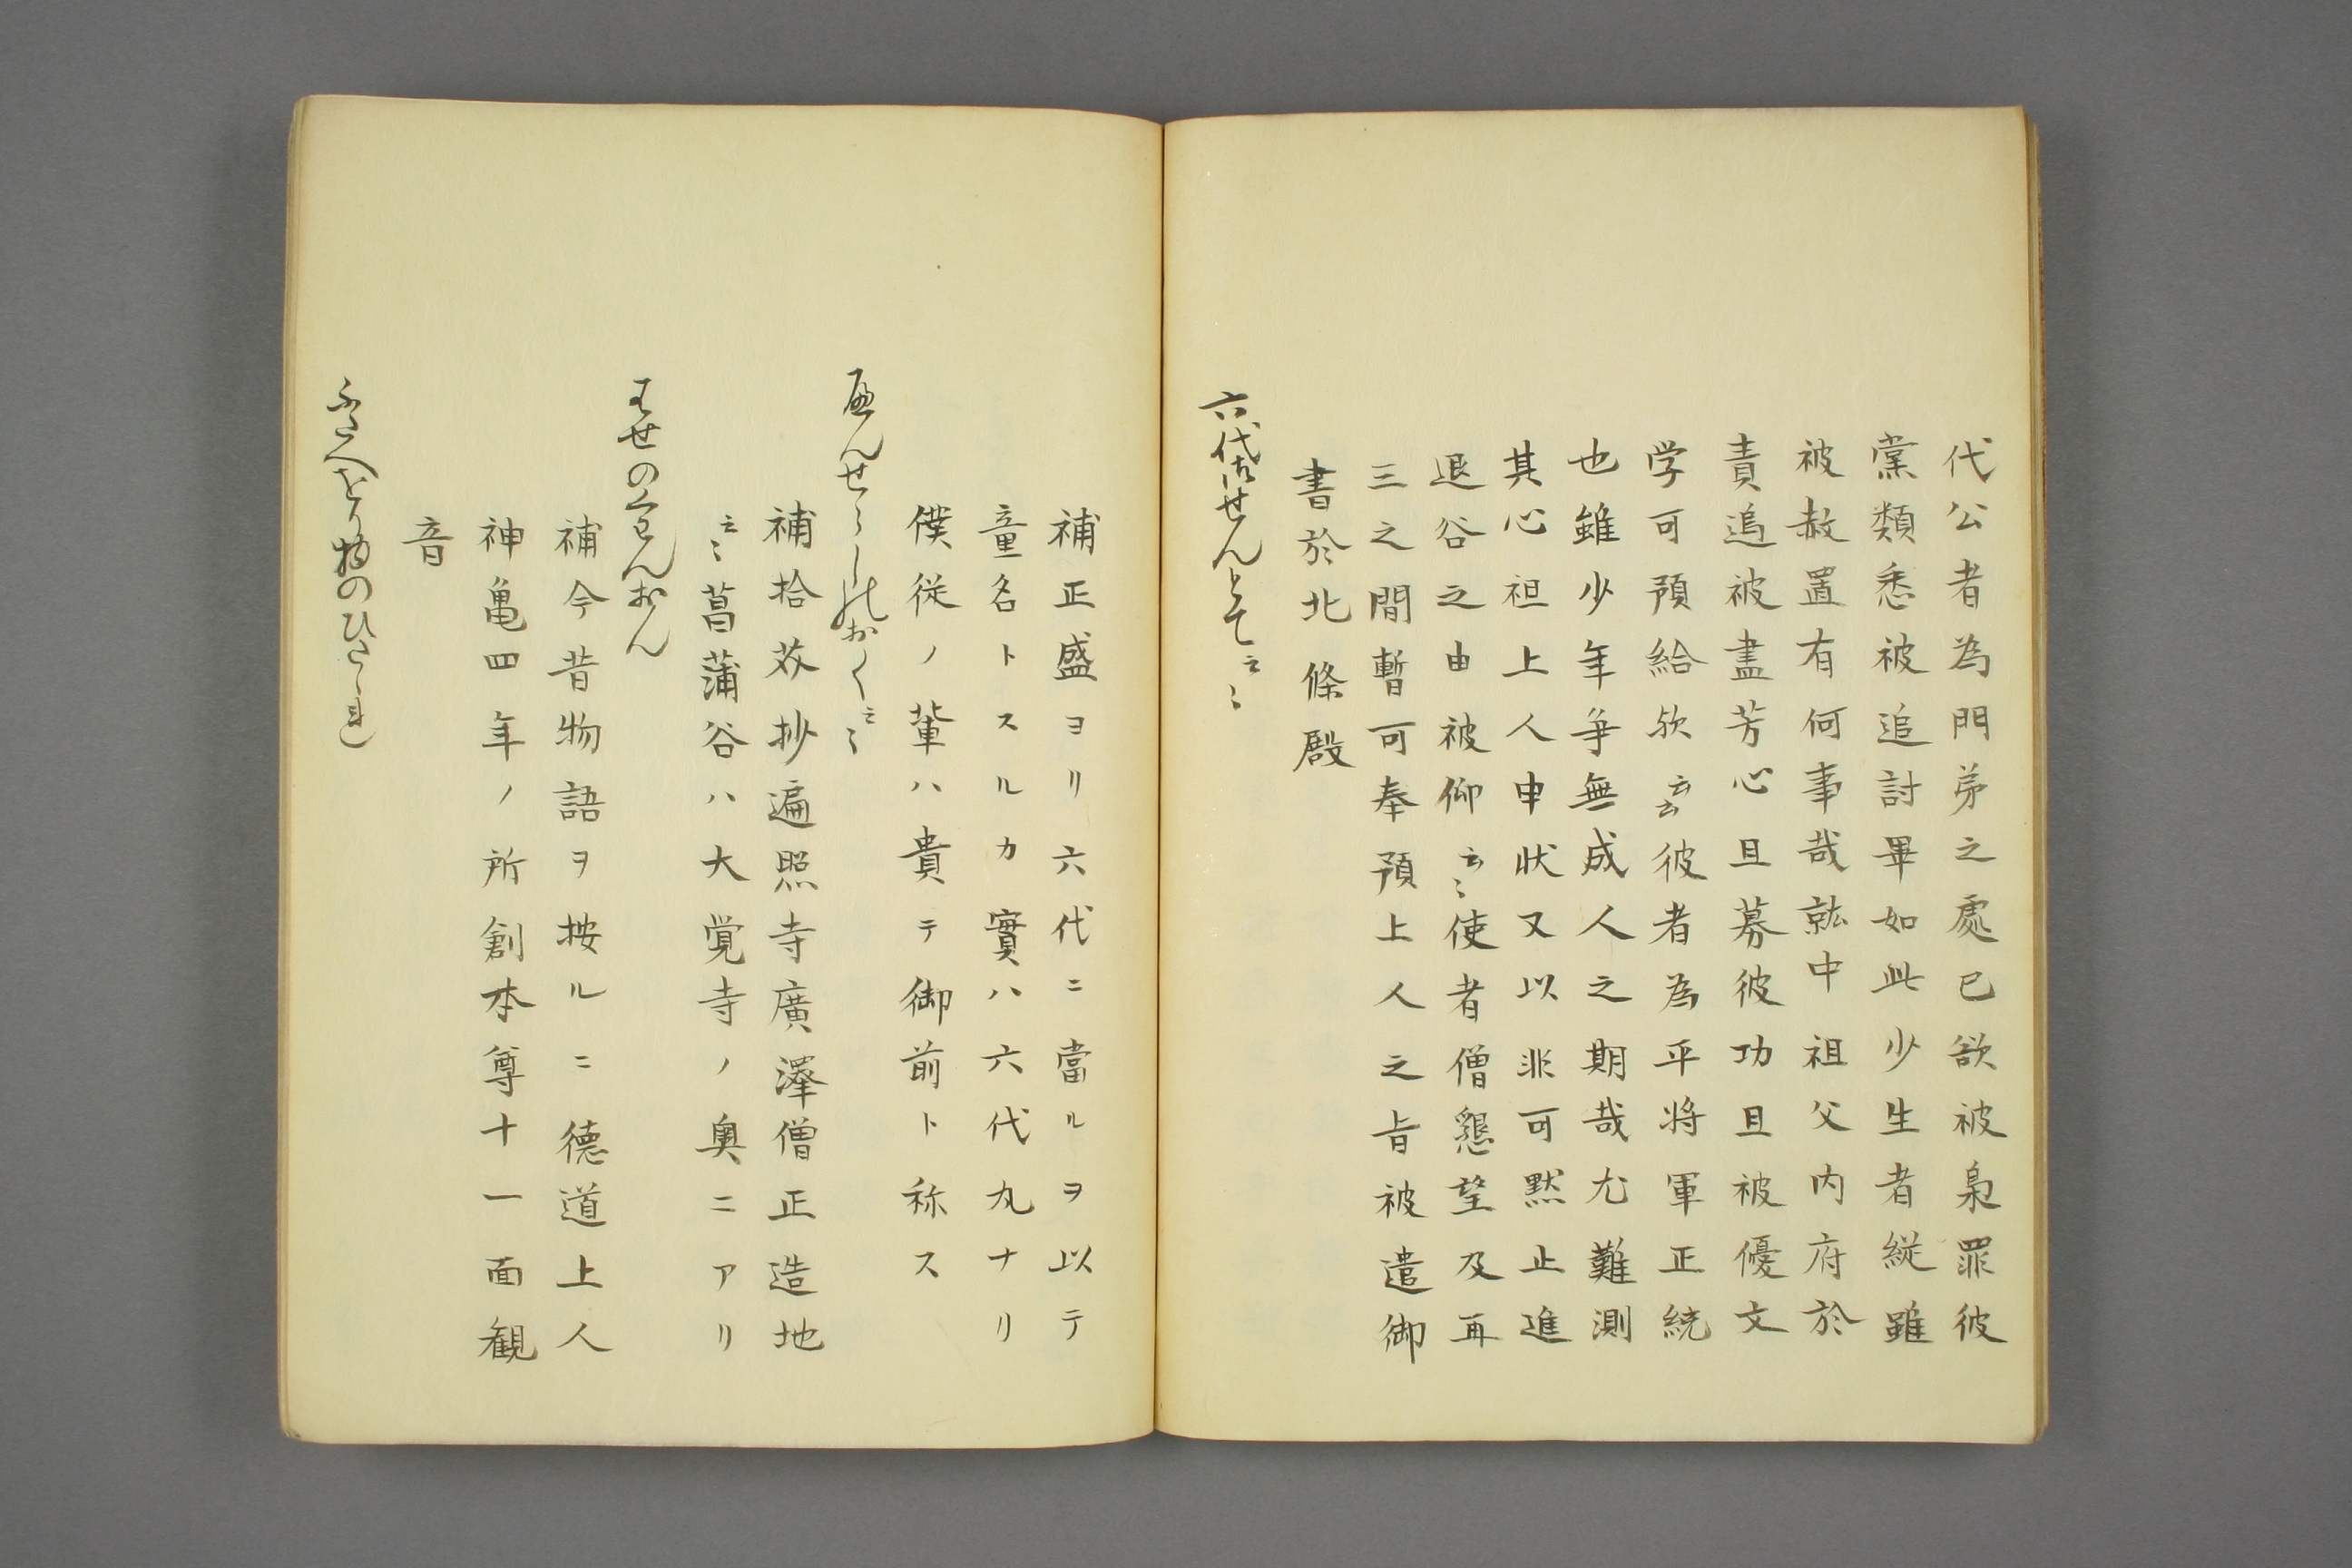 代公者為門弟之處已欲被梟罪彼
黨類悉被追討畢如此少生者縦雖
被赦置有何事哉就中祖父内府於
貴邉被盡芳心且募彼功且被優文
学可預給欤云云彼者為平将軍正統
也雖少年争無成人之期哉尤難測
其心祖上人申状又以非可黙止進
退谷之由被仰云〻使者僧懇望及再
三之間暫可奉預上人之旨被遣御
書於北條殿
六代御せんとて云〻
補正盛ヨリ六代ニ當ルヲ以テ
童名トスルカ實ハ六代丸ナリ
僕従ノ輩ハ貴テ御前ト称ス
へんせうしのおく云〻
補拾芥抄遍照寺廣澤僧正造地
云〻菖蒲谷ハ大覚寺ノ奥ニアリ
はせのくわんおん
補今昔物語ヲ按ルニ德道上人
神亀四年ノ所創本尊十一面観
音
ふたへをり物のひたゝれ